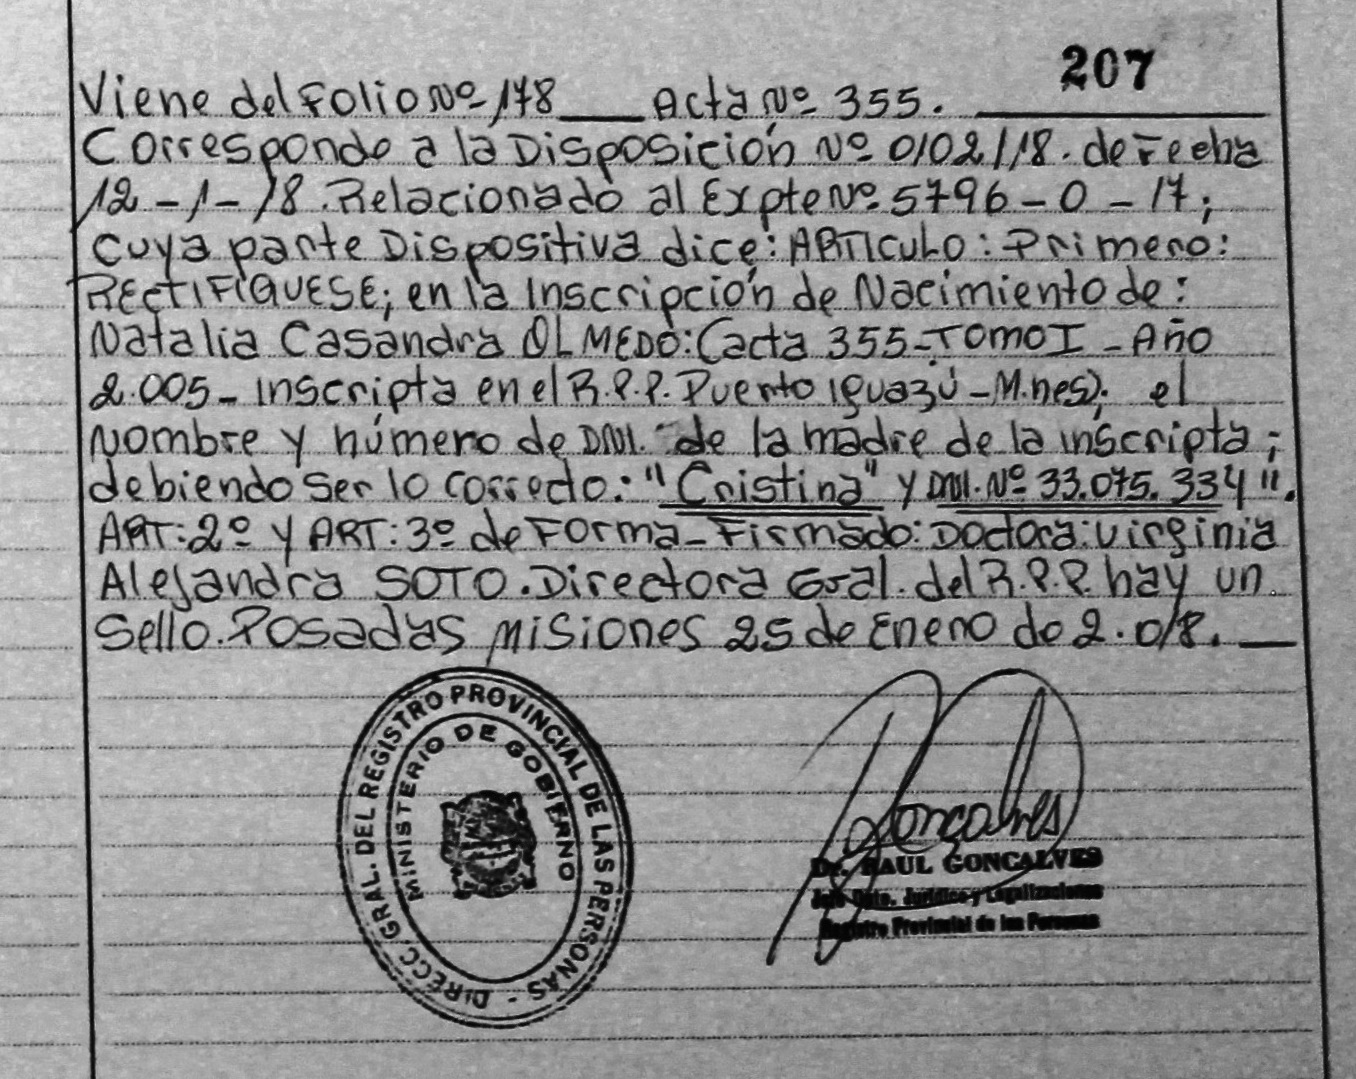 207
Viene del Folio Nº 178 ___ Acta Nº 355.
Corresponde a la Disposición Nº 0102/18. de Fecha
12-1-18. Relacionado al Expte Nº 5796-0-17;
cuya parte Dispositiva dice: ARTICULO: Primero:
RECTIFIQUESE; en la Inscripción de Nacimiento de:
Natalia Casandra OLMEDO: (acta 355-TOMO I - Año
2.005- Inscripta en el R.P.P. Puerto Iguazú-M.nes); el
Nombre y número de DNI. de la madre de la inscripta;
debiendo ser lo correcto: "Cristina" y DNI. Nº 33.075.334".
ART: 2º y ART: 3º de Forma- Firmado: Doctora: Virginia
Alejandra SOTO. Directora Gral. del R.P.P. hay un
Sello. Posadas Misiones 25 de Enero de 2.018. ___
DIRECC. GRAL. DEL REGISTRO PROVINCIAL DE LAS PERSONAS -
MINISTERIO DE GOBIERNO
Gonçalves
Dr. RAUL GONCALVES
Jefe Dpto. Jurídico y Legalizaciones
Registro Provincial de las Personas